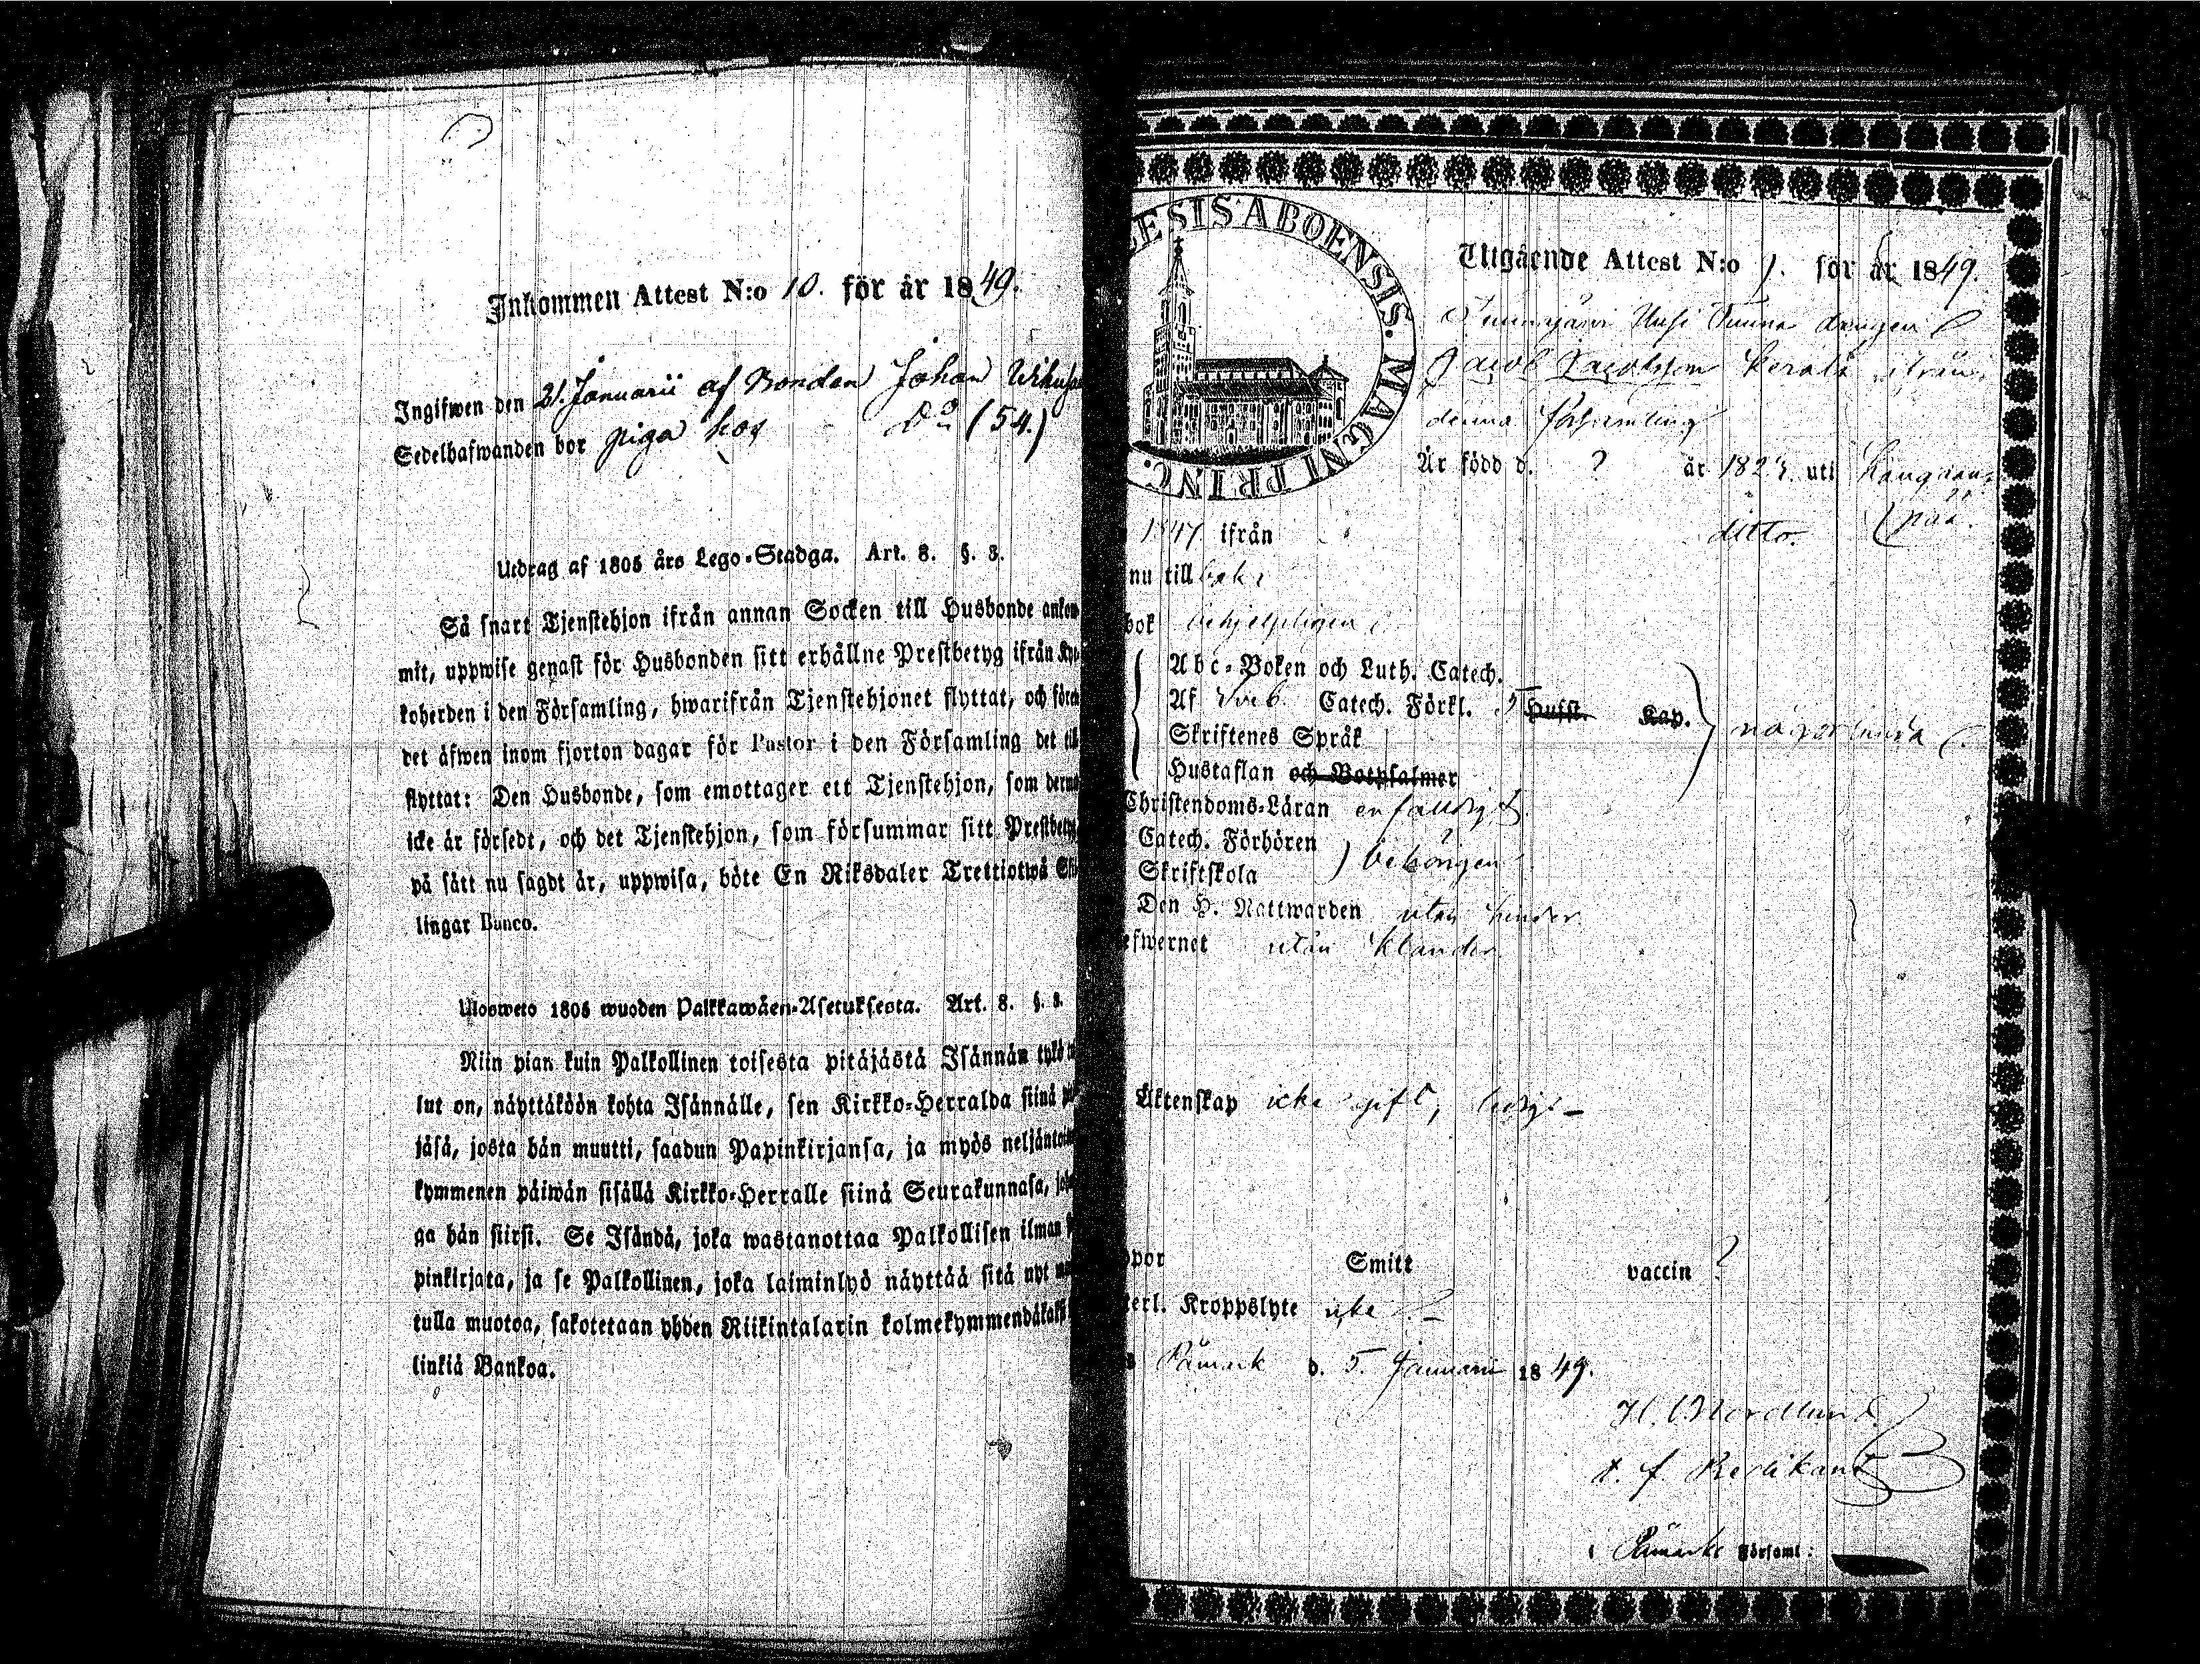 Inkommen Attest N:o 10. för år 1849.
Ingifwen den 21. Januarii af Bonden Johan
Sedelhafwanden bor piga hos Do (54.)
Utdrag af 1805 års Lego-Stadga. Art. 8. §. 3.
Så snart Tjenstehjon ifrån annan Socken till Husbonde ankom-
mit, uppwise genast för Husbonden sitt erhållne Prestbetyg ifrån Kyr-
koherden i den Församling, hwarifrån Tjenstehjonet flyttat, och förete
det äfwen inom fjorton dagar för Pastor i den Församling det till
flyttat: Den Husbonde, som emottager ett Tjenstehjon, som dermed
icke är försedt, och det Tjenstehjon, som försummar sitt Prestbetyg,
på sätt nu sagdt är, uppwisa, böte En Riksdaler Trettiotwå Skil-
lingar Banco.
Ulosweto 1805 wuoden Palkkawäen-Asetuksesta. Art. 8. §. 3.
Niin pian kuin Palkollinen toisesta pitäjästä Isännän tykö
lut on, näyttäköön kohta Isännälle, sen Kirkko-Herralda siinä
jäsä, josta hän muutti, saadun Papinkirjansa, ja myös neljäntoista
kymmenen päiwän sisällä Kirkko-Herralle siinä Seurakunnasa,
ga hän siirsi. Se Isändä, joka wastanottaa Palkollisen ilman
pinkirjata, ja se Palkollinen, joka laiminlyö näyttää sitä nyt
tulla muotoa, sakotetaan yhden Riikintalarin kolmekymmendäkaksi
linkiä Bankoa.
ESIS ABOENSIS. MAGNI PRINC.
Utgående Attest N:o 1. för år 1849.
Uusi drängen
Jacob Jacobsson ifrån
denna församling
Är född d. ? år 182 uti
pää.
1847 ifrån ditto.
nu tillbaka
bok behjelpligen
Abc-Boken och Luth. Catech.
Af Sveb. Catech. Förkl. 5 Hufst. Kap.
Skriftenes Språk
Hustaflan och Botpsalmer
någorlunda
Christendoms-Läran enfaldigt
Catech. Förhören
Skriftskola
behörigen
Den H. Nattwarden utan hinder
efwernet utan klander
Äktenskap icke gift, ledig
ppor Smitt vaccin ?
terl. Kroppslyte icke
Påmark d. 5. Januarii 1849.
H. Nordlund
t. f. Predikant
i Påmarks Församl: